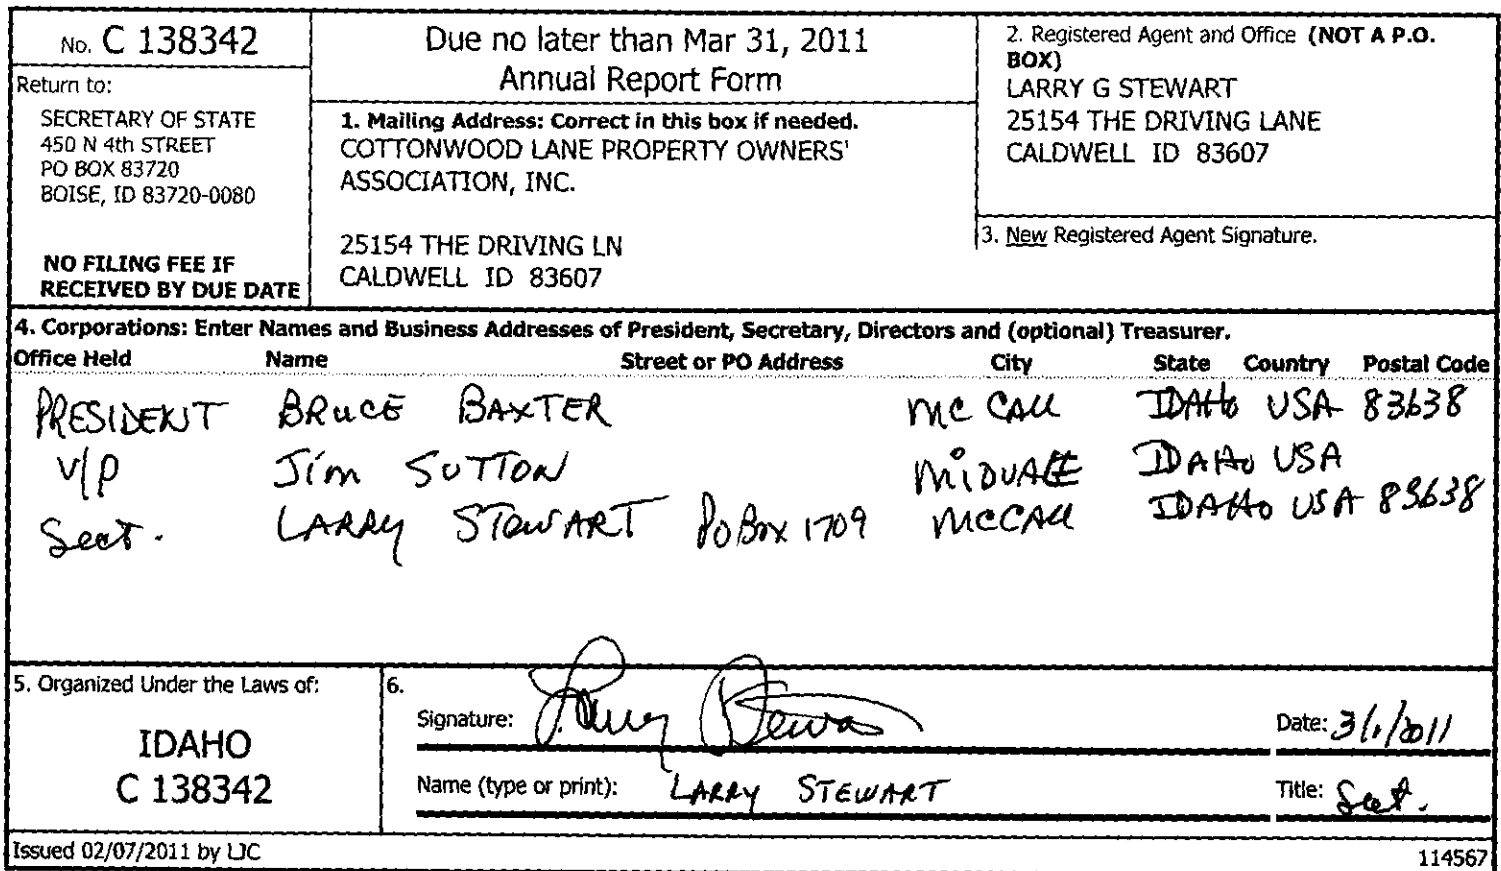 No. C 138342
Return to:
SECRETARY OF STATE
450 N 4th STREET
PO BOX 83720
BOISE, ID 83720-0080
NO FILING FEE IF
RECEIVED BY DUE DATE
Due no later than Mar 31, 2011
Annual Report Form
1. Mailing Address: Correct in this box if needed.
COTTONWOOD LANE PROPERTY OWNERS'
ASSOCIATION, INC.
25154 THE DRIVING LN
CALDWELL ID 83607
2. Registered Agent and Office (NOT A P.O.
BOX)
LARRY G STEWART
25154 THE DRIVING LANE
CALDWELL ID 83607
3. New Registered Agent Signature.
4. Corporations: Enter Names and Business Addresses of President, Secretary, Directors and (optional) Treasurer.
Office Held Name Street or PO Address City State Country Postal Code
PRESIDENT BRUCE BAXTER MC CALL IDAHO USA 83638
V/P Jim SUTTON MIDVALE IDAHO USA
Sect. LARRY STEWART PO Box 1709 MCCALL IDAHO USA 83638
5. Organized Under the Laws of:
IDAHO
C 138342
6.
Signature: Larry Stewart Date: 3/1/2011
Name (type or print): LARRY STEWART Title: Sect.
Issued 02/07/2011 by LJC
114567